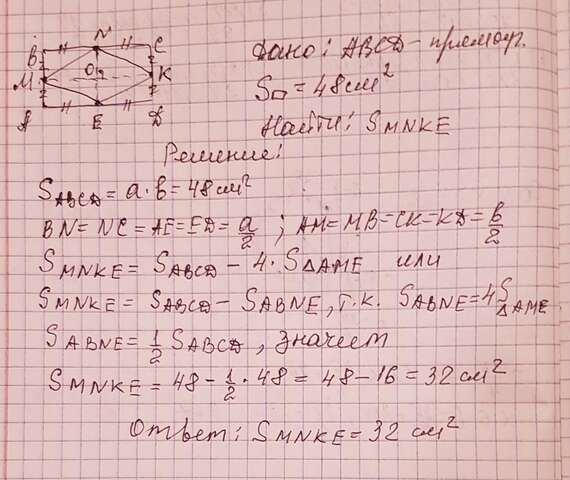 B N C
M O K
A E D
Дано: ABCD - прямоуг.
S▭ = 48 см²
Найти: SMNKE
Решение:
SABCD = a · b = 48 см²
BN = NC = AE = ED = a/2 ; AM = MB = CK = KD = b/2
SMNKE = SABCD - 4 · S△AME или
SMNKE = SABCD - SABNE, т.к. SABNE = 4S△AME
SABNE = 1/2 SABCD, значит
SMNKE = 48 - 1/2 · 48 = 48 - 16 = 32 см²
Ответ: SMNKE = 32 см²